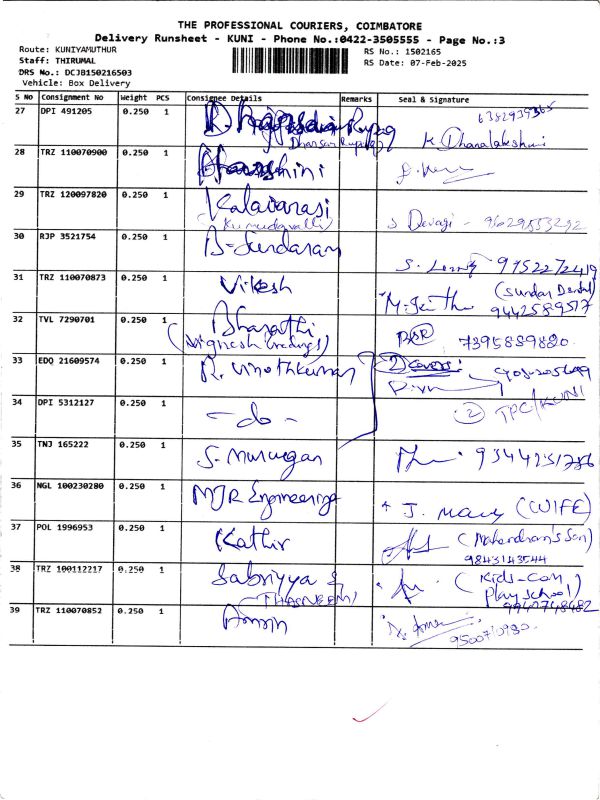 THE PROFESSIONAL COURIERS, COIMBATORE
Delivery Runsheet - KUNI - Phone No.:0422-3505555 - Page No.:3
Route: KUNIYAMUTHUR RS No.: 1502165
Staff: THIRUMAL RS Date: 07-Feb-2025
DRS No.: DCJB150216503
Vehicle: Box Delivery
S No Consignment No Weight PCS Consignee Details Remarks Seal & Signature
27 DPI 491205 0.250 1 K. Dhanalakshmi
28 TRZ 110070900 0.250 1
29 TRZ 120097820 0.250 1 Kalaiarasi
(Kumudavalli) S Devagi - 9629853292
30 RJP 3521754 0.250 1 B-Sundaram
9952272419
31 TRZ 110070873 0.250 1 Vikesh (Sundar Dental)
9442589517
32 TVL 7290701 0.250 1 Bharathi
(Vignesh tradings) 7395889820
33 EDQ 21609574 0.250 1 R. Vinothkumar
34 DPI 5312127 0.250 1 -do- (2) TPC/KUNI
35 TNJ 165222 0.250 1 S. Murugan 9344251786
36 NGL 100230280 0.250 1 MJR Engineering J. Mary (WIFE)
37 POL 1996953 0.250 1 Kathir (Mahendran's Son)
9843143544
38 TRZ 100112217 0.250 1 Sabriyya S (Kids-Can
(THASNEEM) Play School)
9940748482
39 TRZ 110070852 0.250 1 Amrin
9500710980